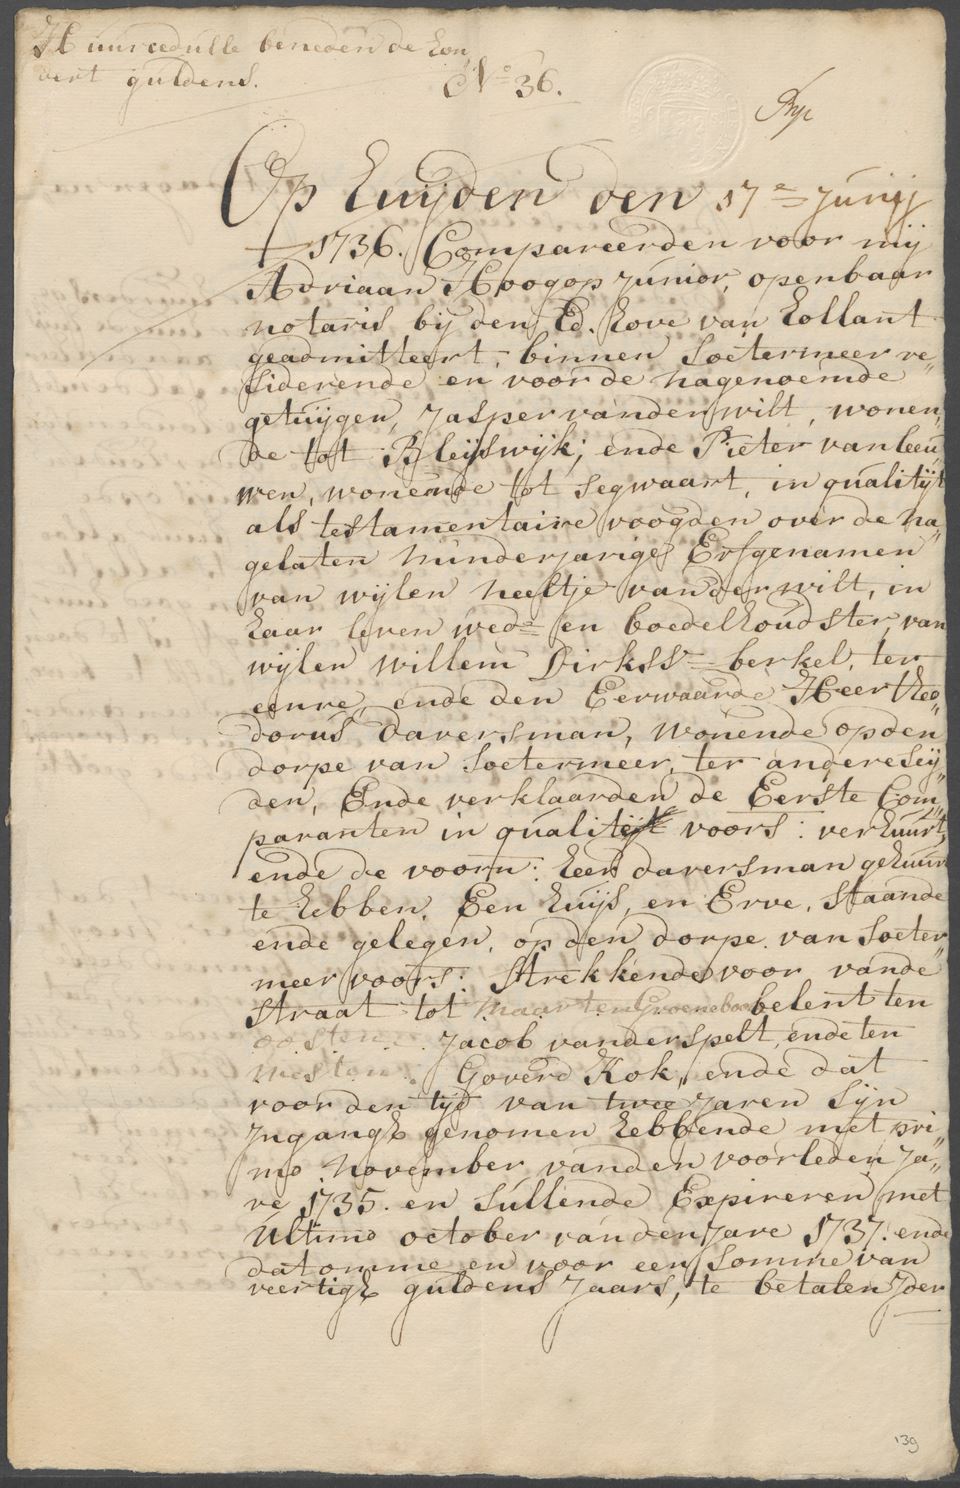 Huurcedulle beneden de hon
dert guldens.
No 36.
Op huijden den 17e Junij
1736. Compareerden voor mij
Adriaan Hoogop Junior, openbaar
notaris bij den Ed. hove van hollant
geadmitteert, binnen Soetermeer re„
siderende en voor de nagenoemde
getuijgen, Jasper vanderwilt, wonen„
de tot Bleijswijk; ende Pieter van leeu„
wen, wonende tot segwaart, in qualitijt
als testamentaire voogden over de na„
gelaten minderjarige Erfgenamen
van wijlen neeltje vanderwilt, in
haar leven wede en boedelhoudster, van
wijlen willem Dirkss berkel, ter
eenre, ende den Eerwaarde Heer theo„
dorus daversman, wonende op den
dorpe van Soetermeer, ter andere sij„
den, Ende verklaarden de Eerste Com„
paranten in qualitijt voors: verhuurt,
ende de voorn: heer daversman gehuurt
te hebben. Een huijs, en Erve, staande
ende gelegen, op den dorpe van Soeter„
meer voors: strekkende voor vande
straat tot maarten Groeneboo belent ten
oosten Jacob vanderspelt, ende ten
westen Goverd Kok, ende dat
voor den tijd van twee Jaren sijn
Jngangh genomen hebbende met pri
mo november vanden voorleden Ja„
re 1735. en sullende Expireren met
ultimo october vanden Jare 1737. ende
dat omme en voor een somme van
veertigh guldens Jaars, te betalen Jder
139